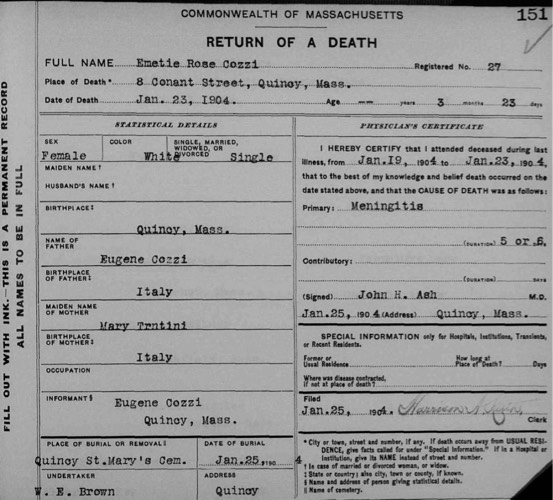 COMMONWEALTH OF MASSACHUSETTS
151
RETURN OF A DEATH
FULL NAME Emetie Rose Cozzi Registered No. 27
Place of Death* 8 Conant Street, Quincy, Mass.
Date of Death Jan. 23, 1904. Age -- years 3 months 23 days
FILL OUT WITH INK.—THIS IS A PERMANENT RECORD
ALL NAMES TO BE IN FULL
STATISTICAL DETAILS
SEX COLOR SINGLE, MARRIED, WIDOWED, OR DIVORCED
Female White Single
MAIDEN NAME †
HUSBAND'S NAME †
BIRTHPLACE ‡
Quincy, Mass.
NAME OF FATHER
Eugene Cozzi
BIRTHPLACE OF FATHER ‡
Italy
MAIDEN NAME OF MOTHER
Mary Trntini
BIRTHPLACE OF MOTHER ‡
Italy
OCCUPATION
INFORMANT § Eugene Cozzi
Quincy, Mass.
PLACE OF BURIAL OR REMOVAL || DATE OF BURIAL
Quincy St.Mary's Cem. Jan.25, 190 4
UNDERTAKER ADDRESS
W. E. Brown Quincy
PHYSICIAN'S CERTIFICATE
I HEREBY CERTIFY that I attended deceased during last
illness, from Jan.19, 1904 to Jan.23, 1904,
that to the best of my knowledge and belief death occurred on the
date stated above, and that the CAUSE OF DEATH was as follows:
Primary: Meningitis
(DURATION) 5 or 6
Contributory:
(DURATION) DAYS
(Signed) John H. Ash M.D.
Jan.25, 1904 (Address) Quincy, Mass.
SPECIAL INFORMATION only for Hospitals, Institutions, Transients,
or Recent Residents.
Former or Usual Residence How long at Place of Death? Days
Where was disease contracted,
if not at place of death?
Filed
Jan.25, 1904.
Clerk
* City or town, street and number, if any. If death occurs away from USUAL RESI-
DENCE, give facts called for under "Special Information." If in a Hospital or
Institution, give its NAME instead of street and number.
† In case of married or divorced woman, or widow.
‡ State or country; also city, town or county, if known.
§ Name and address of person giving statistical details.
|| Name of cemetery.